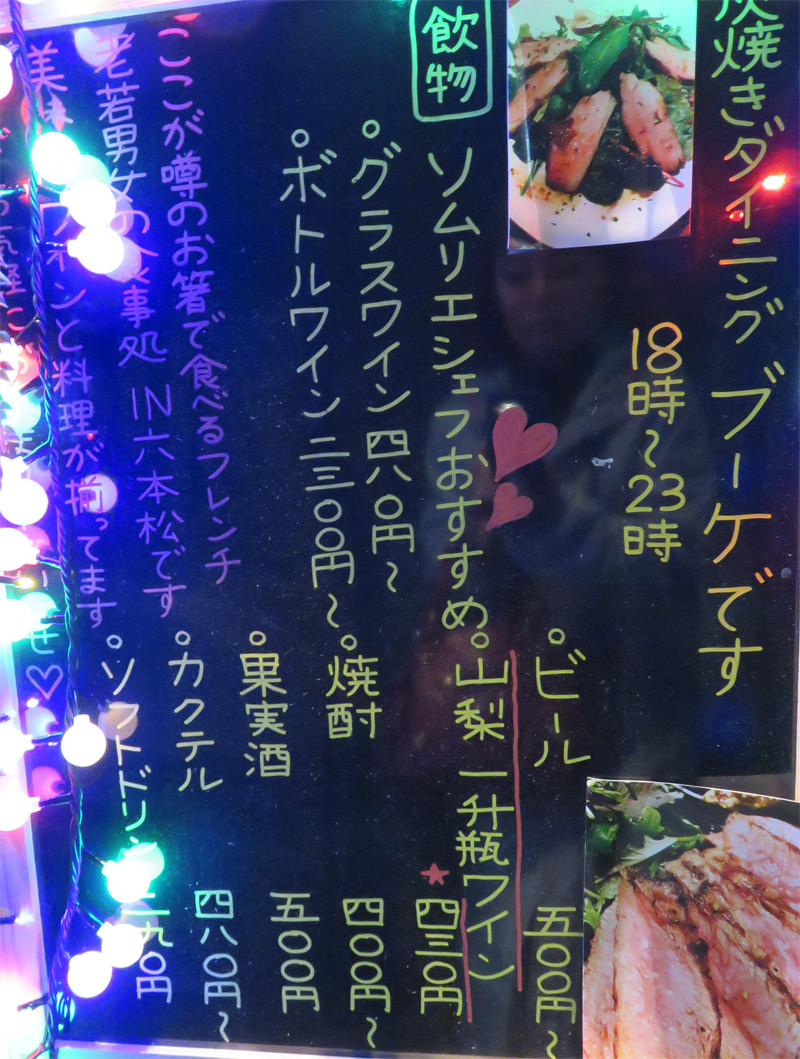 炭焼きダイニング ブーケです
18時～23時
飲物
ソムリエシェフおすすめ
○グラスワイン 四八〇円～
○ボトルワイン 二三〇〇円～
○ビール 五〇〇円～
○山梨 一升瓶ワイン
★四三〇円
○焼酎 四〇〇円～
○果実酒 五〇〇円
○カクテル 四八〇円～
○ソフトドリン 二九〇円
ここが噂のお箸で食べるフレンチ
老若男女の食事処 IN六本松です
美味 ワインと料理が揃ってます
せ♡